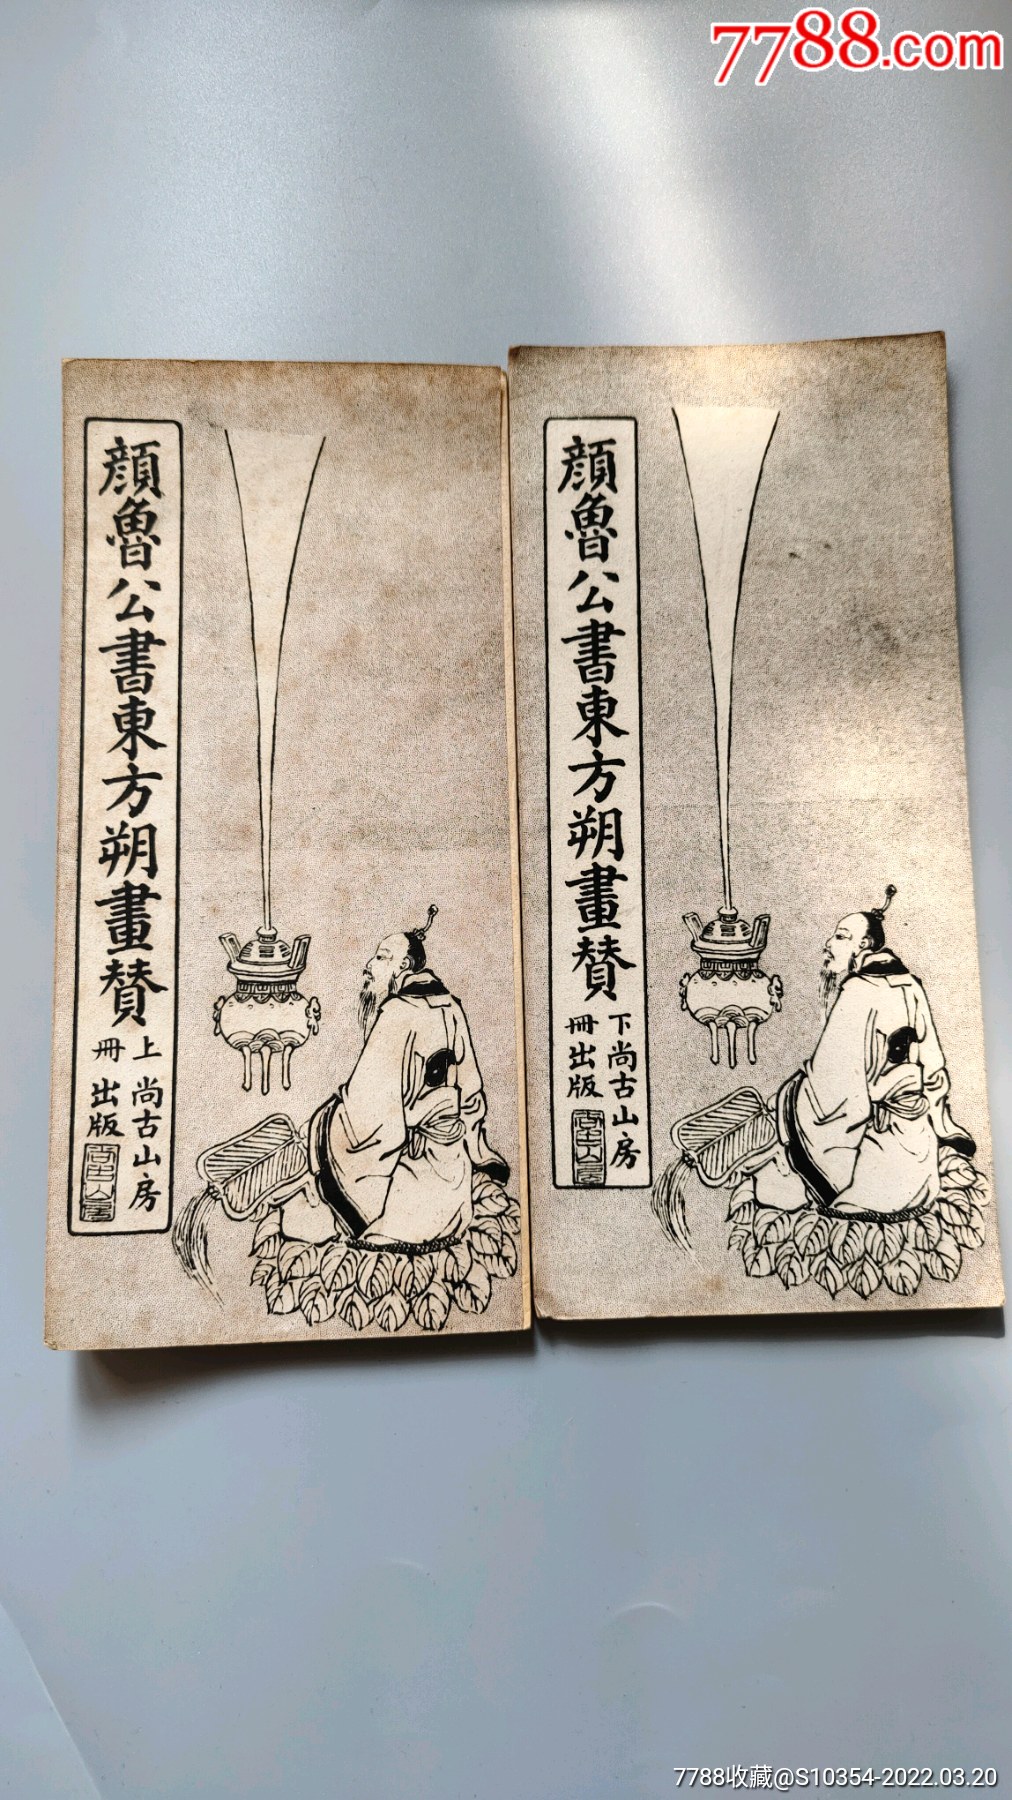 7788.com
顔魯公書東方朔畫賛
上冊
尚古山房
出版
顔魯公書東方朔畫賛
下冊
尚古山房
出版
7788收藏@S10354-2022.03.20